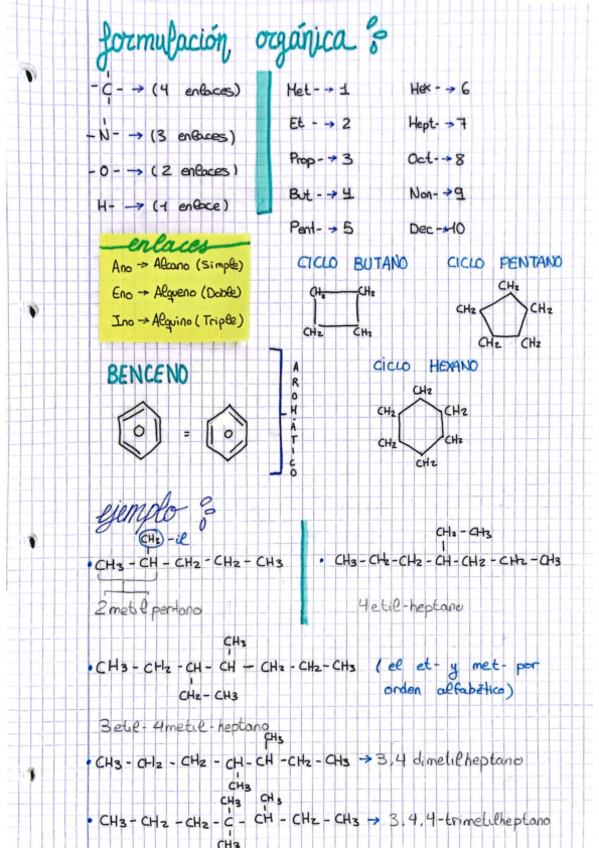 formulación orgánica
-C- → (4 enlaces) Met- → 1 Hex- → 6
-N- → (3 enlaces) Et- → 2 Hept- → 7
-O- → (2 enlaces) Prop- → 3 Oct- → 8
H- → (1 enlace) But- → 4 Non- → 9
Pent- → 5 Dec → 10
enlaces
Ano → Alcano (Simple)
Eno → Alqueno (Doble)
Ino → Alquino (Triple)
CICLO BUTANO CICLO PENTANO
CH2 CH2
CH2 CH2
CH2
CH2 CH2
CH2 CH2
BENCENO
=
AROMÁTICO
CICLO HEXANO
CH2
CH2 CH2
CH2 CH2
CH2
ejemplo
CH3 -il
• CH3 - CH - CH2 - CH2 - CH3
2 metil pentano
CH2 - CH3
• CH3 - CH2 - CH2 - CH - CH2 - CH2 - CH3
4 etil-heptano
CH3
• CH3 - CH2 - CH - CH - CH2 - CH2 - CH3 (el et- y met- por
CH2 - CH3 orden alfabético)
3 etil-4 metil-heptano
CH3
• CH3 - CH2 - CH2 - CH - CH - CH2 - CH3 → 3,4 dimetilheptano
CH3
CH3 CH3
• CH3 - CH2 - CH2 - C - CH - CH2 - CH3 → 3,4,4-trimetilheptano
CH3